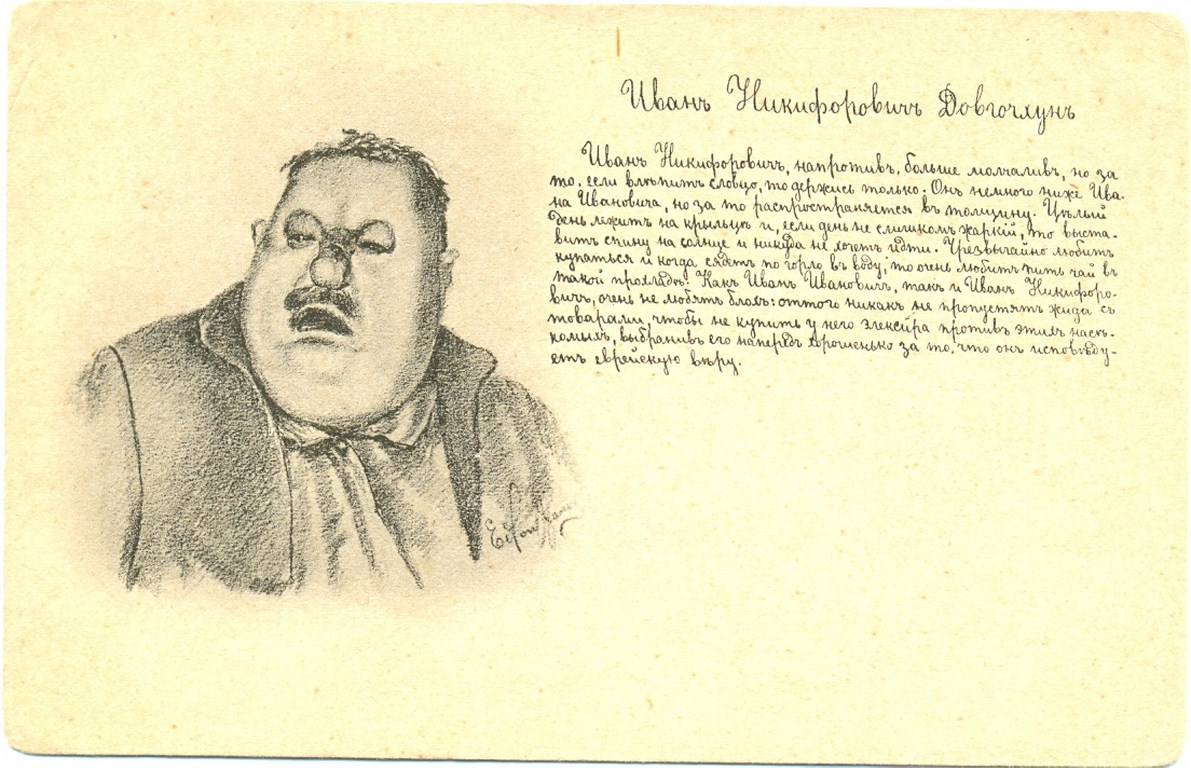 Иванъ Никифоровичъ Довгочхунъ
Иванъ Никифоровичъ, напротивъ, больше молчаливъ, но за
то, если влѣпитъ словцо, то держись только. Онъ немного ниже Ива-
на Ивановича, но за то распространяется въ толщину. Цѣлый
день лежитъ на крыльцѣ и, если день не слишкомъ жаркій, то выста-
витъ спину на солнце и никуда не хочетъ идти. Чрезвычайно любитъ
купаться и когда сядетъ по горло въ воду, то очень любитъ пить чай въ
такой прохладѣ. Какъ Иванъ Ивановичъ, такъ и Иванъ Никифоро-
вичъ, очень не любятъ блохъ: оттого никакъ не пропустятъ жида съ
товарами, чтобы не купить у него элексира противъ этихъ насѣ-
комыхъ, выбранивъ его напередъ хорошенько за то, что онъ исповѣду-
етъ еврейскую вѣру.